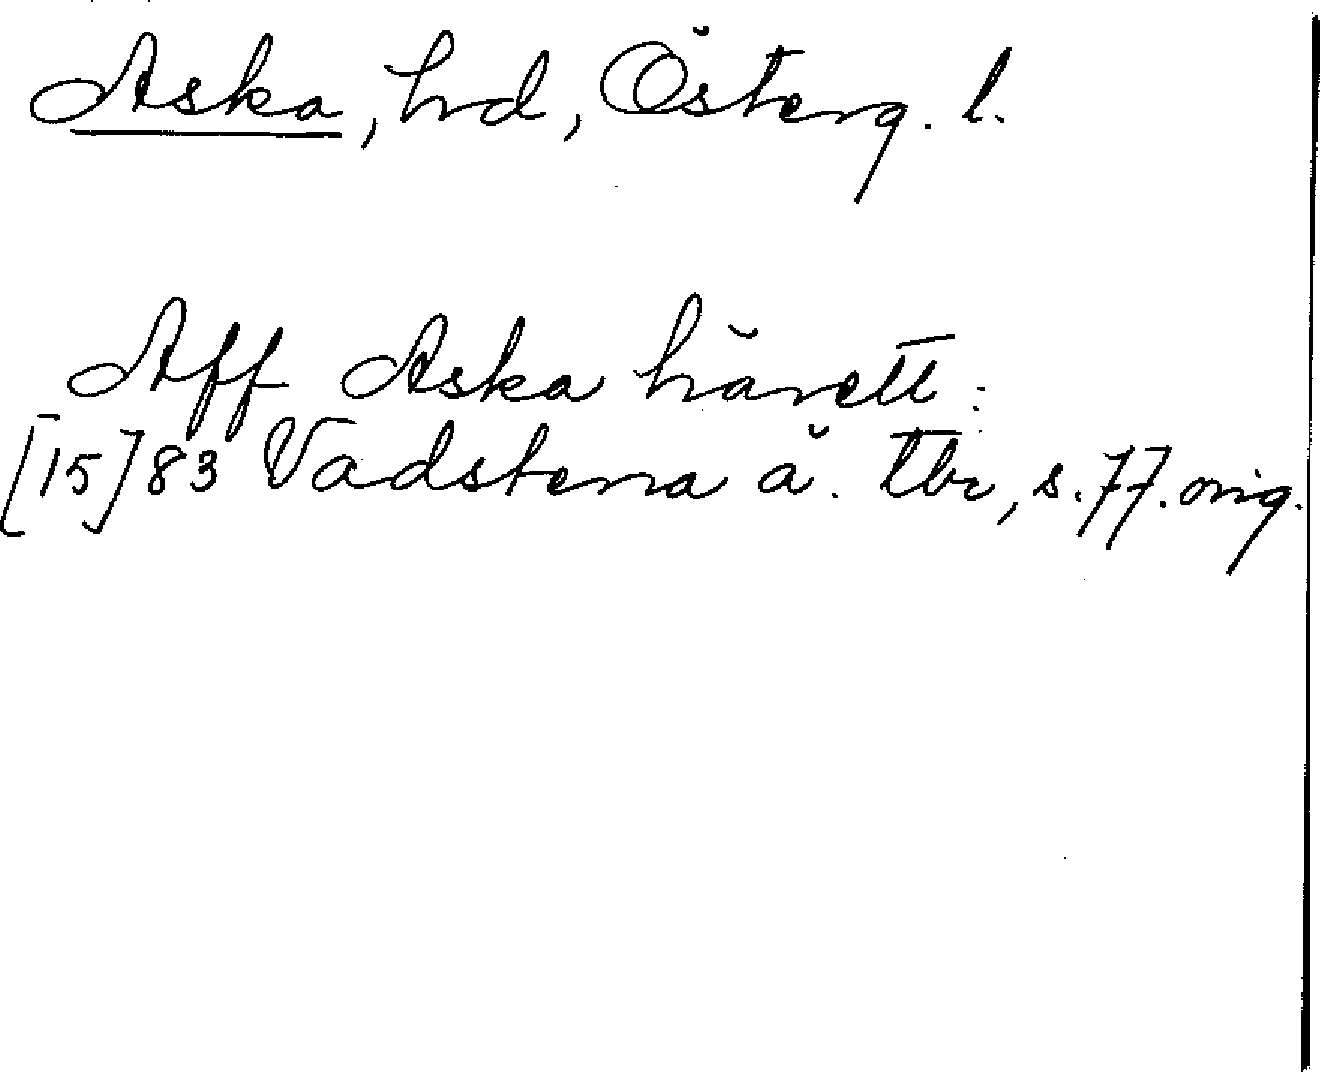 Aska, hd, Österg. l.
Aff Aska härett:
[15]83 Vadstena ä. Tbr, s. 77. orig.